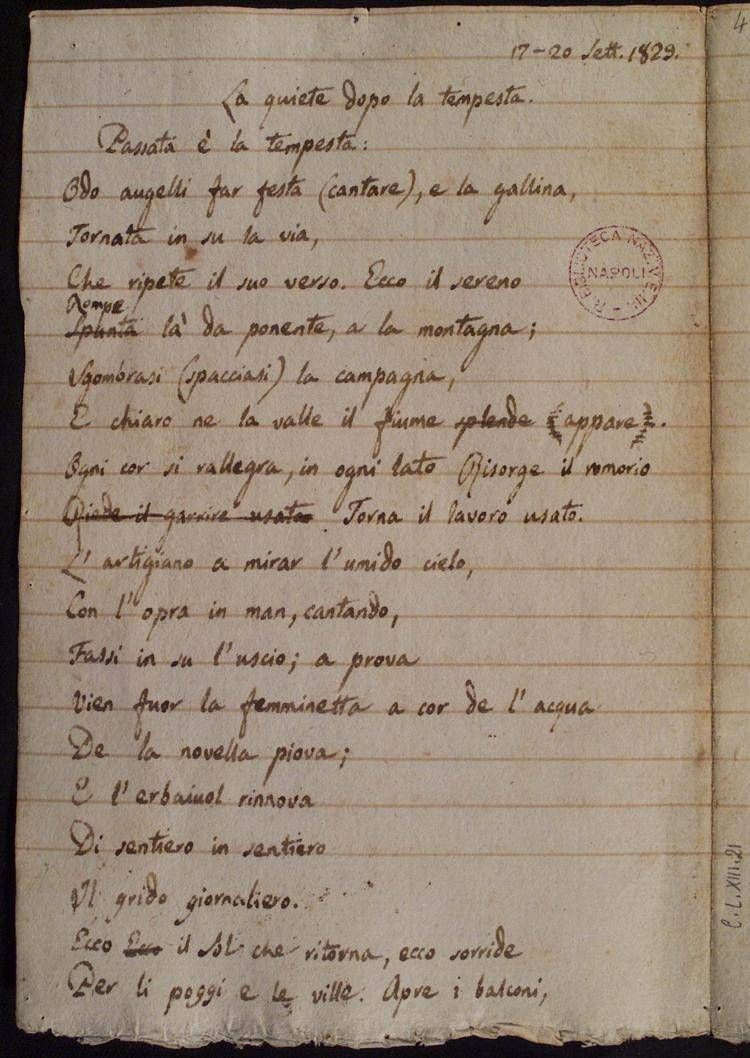 4
17-20 Sett. 1829.
La quiete dopo la tempesta.
Passata è la tempesta:
Odo augelli far festa (cantare), e la gallina,
Tornata in su la via,
Che ripete il suo verso. Ecco il sereno
Rompe
Spunta là da ponente, a la montagna;
Sgombrasi (spacciasi) la campagna,
E chiaro ne la valle il fiume splende (appare).
Ogni cor si rallegra, in ogni lato Risorge il romorio
Riede il garrire usato Torna il lavoro usato.
L'artigiano a mirar l'umido cielo,
Con l'opra in man, cantando,
Fassi in su l'uscio; a prova
Vien fuor la femminetta a cor de l'acqua
De la novella piova;
E l'erbaiuol rinnova
Di sentiero in sentiero
Il grido giornaliero.
Ecco Ecco il Sol che ritorna, ecco sorride
Per li poggi e le ville. Apre i balconi,
R. BIBLIOTECA NAZ. VE. III
NAPOLI
C.L.XIII.21